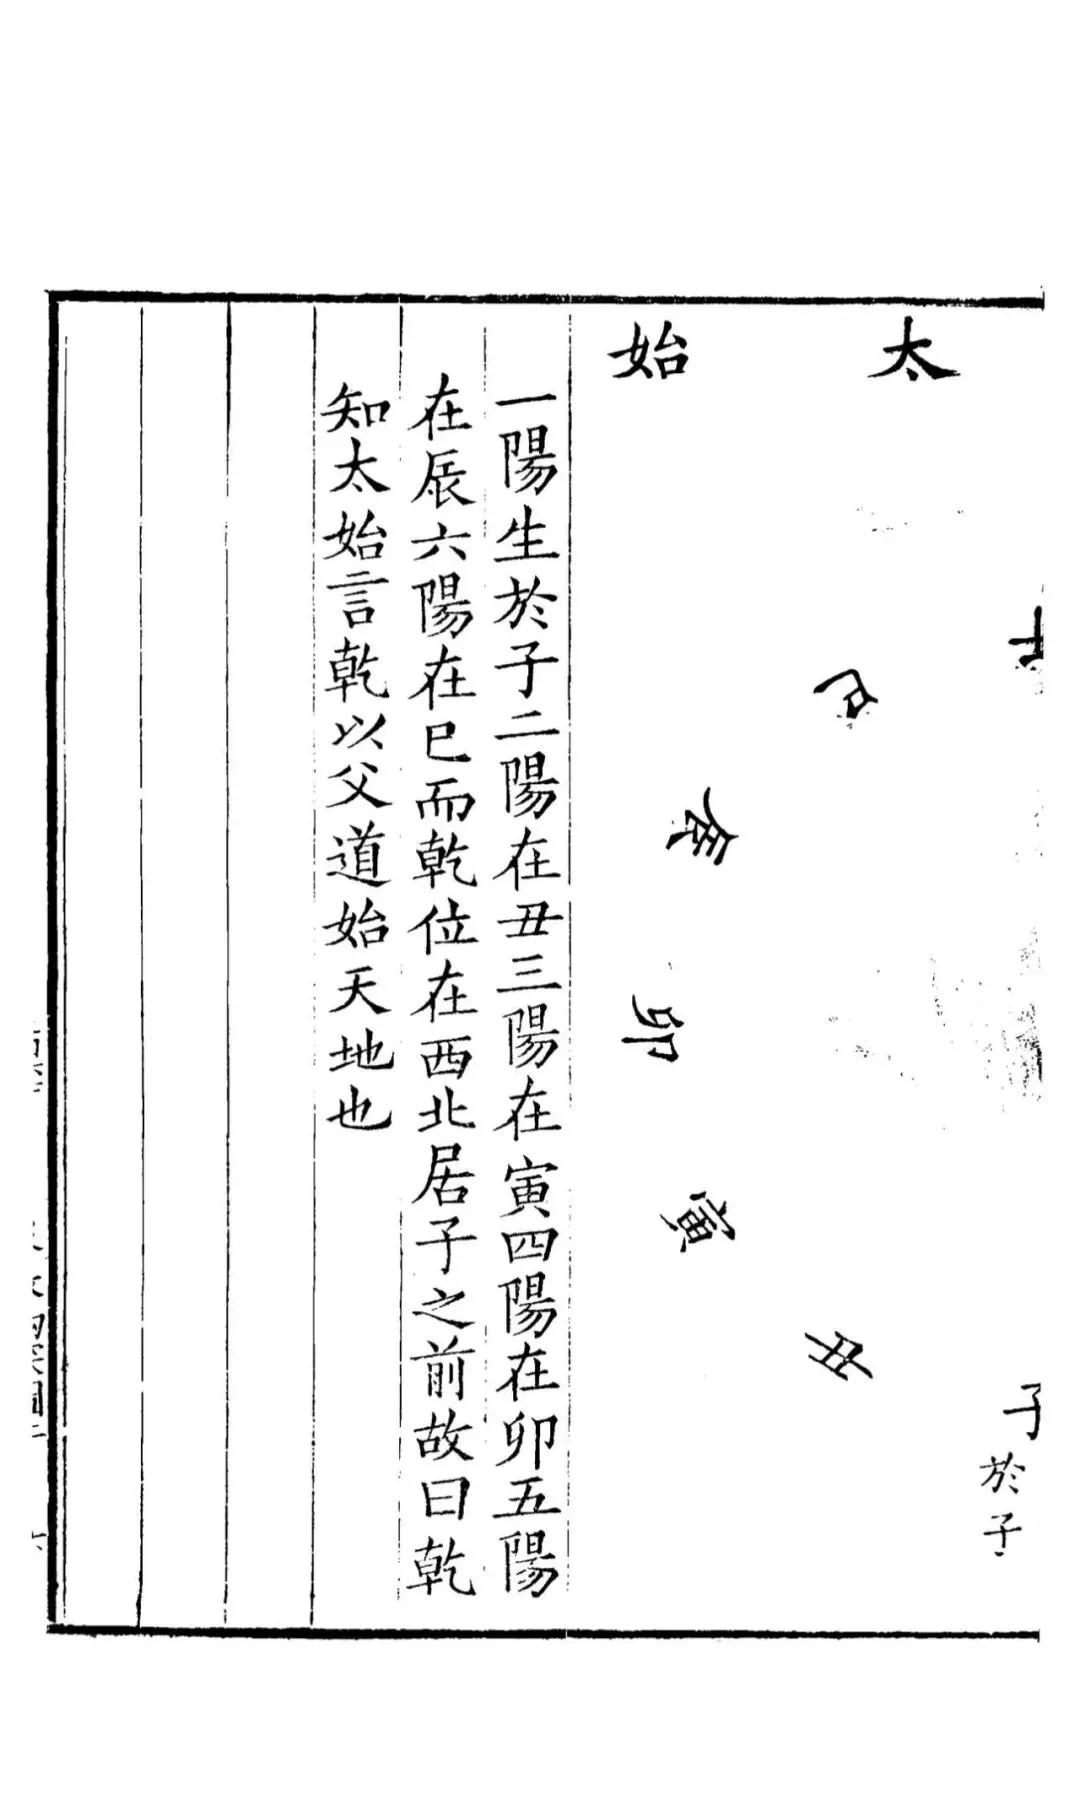 太始
巳
辰
卯
寅
丑
子
於子
一陽生於子二陽在丑三陽在寅四陽在卯五陽
在辰六陽在巳而乾位在西北居子之前故曰乾
知太始言乾以父道始天地也